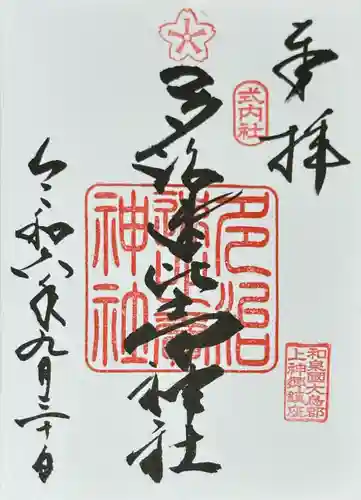 奉拝
式内社
多治速比売神社
多治
速比賣
神社
和泉國大鳥郡
上神郷鎮座
令和六年九月三十日